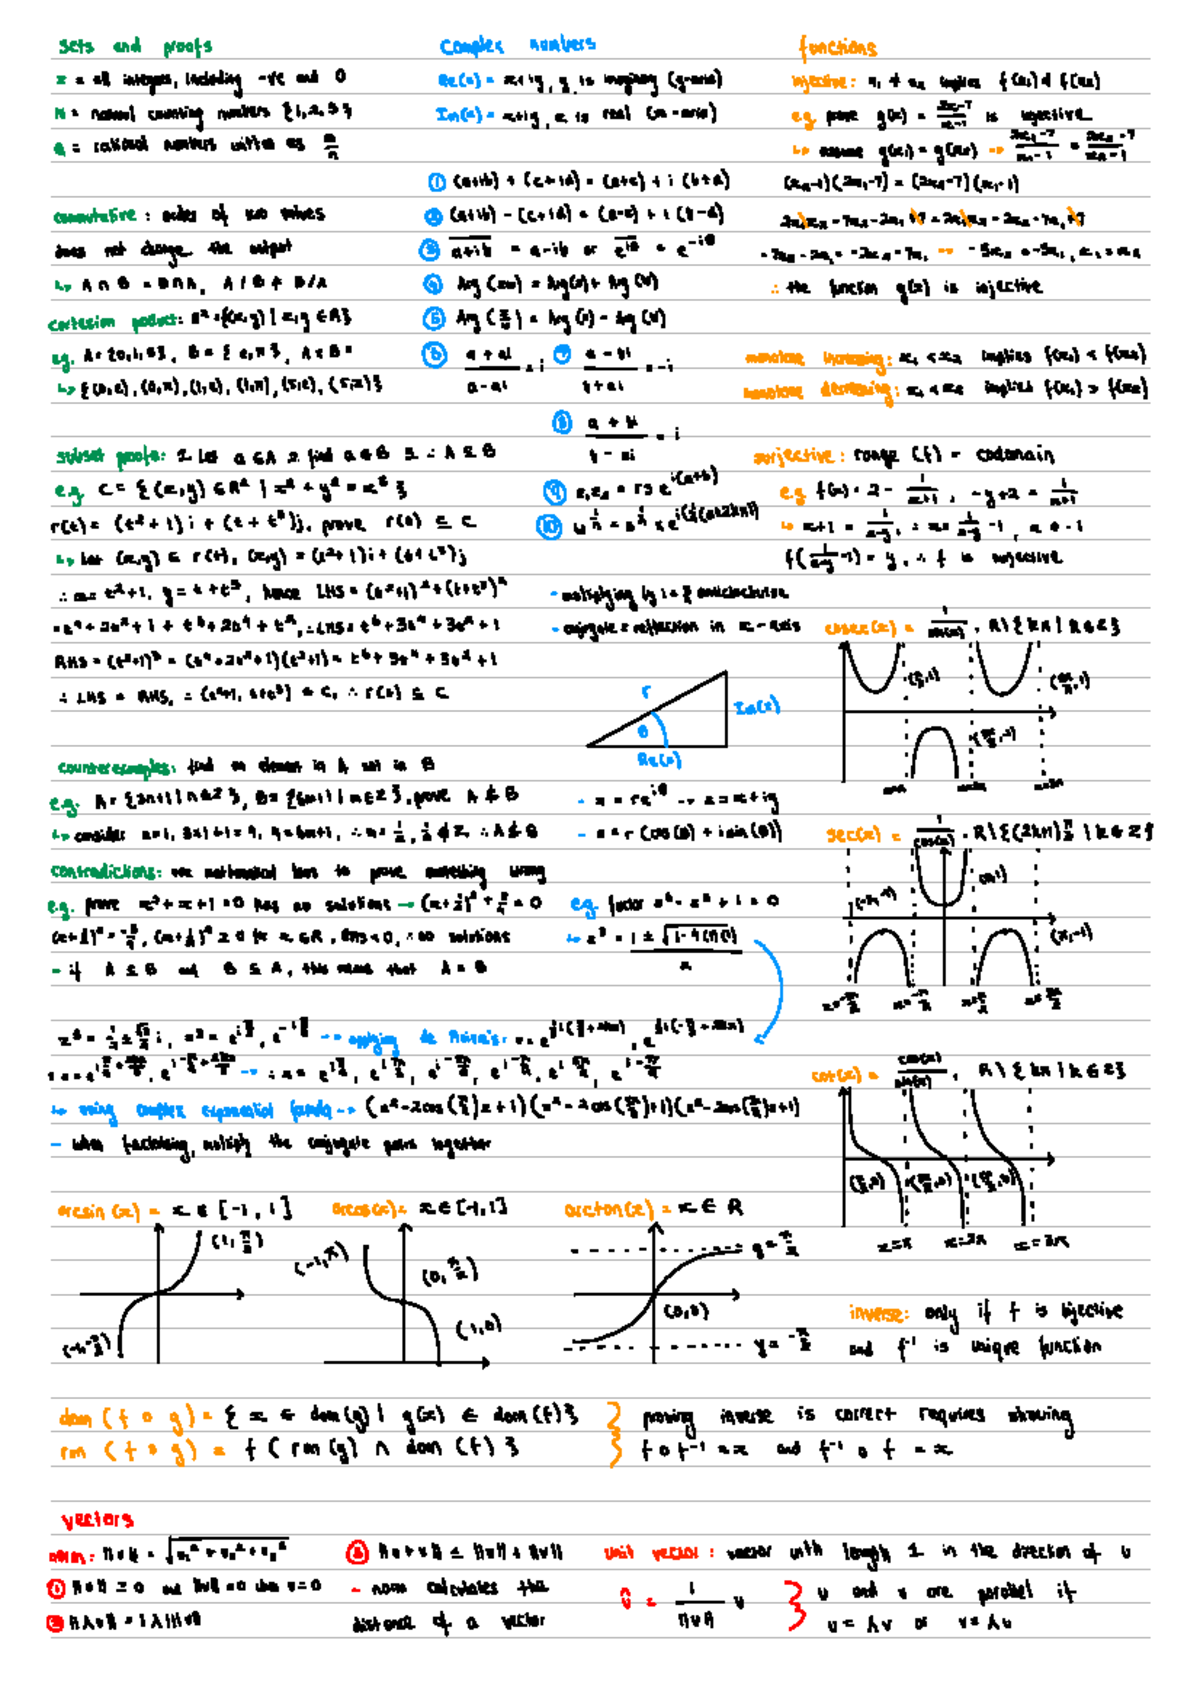 sets and proofs
z = all integers, including -ve and 0
N = natural counting numbers {1,2,3}
Q = rational numbers written as m/n
commutative : order of two values
does not change the output
↳ A ∩ B = B ∩ A, A / B ≠ B/A
cartesian product: R² = {(x,y) | x,y ∈ R}
↳ {(0,e), (0,π), (1,e), (1,π), (5,e), (5,π)}
subset proofs: 1. Let a ∈ A 2. find a ∈ B 3. ∴ A ⊆ B
e.g. C = { (x,y) ∈ R² | x² + y² = x³ }
r(t) = (t² + 1) i + (t + t³)j, prove r(t) ⊆ C
↳ let (x,y) ∈ r(t), (x,y) = (t²+1)i + (t+t³)j
∴ x = t²+1, y = t + t³, hence LHS = (t²+1)² + (t+t³)²
= t⁴ + 2t² + 1 + t⁶ + 2t⁴ + t², ∴ LHS = t⁶ + 3t⁴ + 3t² + 1
RHS = (t²+1)³ = (t⁴ + 2t² + 1)(t²+1) = t⁶ + 3t⁴ + 3t² + 1
∴ LHS = RHS, ∴ (t²+1, t+t³) ∈ C, ∴ r(t) ⊆ C
counterexamples: find an element in A not in B
e.g. A = {3n+1 | n ∈ Z}, B = {6m+1 | m ∈ Z}, prove A ⊄ B
↳ consider n=1, 3×1+1=4, 4=6m+1, ∴ m = 1/2, 1/2 ∉ Z, ∴ A ⊄ B
contradictions: use mathematical laws to prove something wrong
e.g. prove x² + x + 1 = 0 has no solutions → (x+1/2)² + 3/4 = 0
(x+1/2)² = -3/4, (x+1/2)² ≥ 0 for x ∈ R, RHS < 0, ∴ no solutions
- if A ⊆ B and B ⊆ A, this means that A = B
complex numbers
Re(z) = x+iy, y is imaginary (y-axis)
Im(z) = x+iy, x is real (x-axis)
① (a+ib) + (c+id) = (a+c) + i (b+d)
② (a+ib) - (c+id) = (a-c) + i (b-d)
③ a+ib = a-ib or e^iθ = e^-iθ
④ Arg (zw) = Arg(z) + Arg (w)
⑤ Arg (z/w) = Arg (z) - Arg (w)
⑥ a + ai / a - ai = i ⑦ a - bi / b + ai = -i
⑧ a + bi / b - ai = i
⑨ z₁z₂ = rs e^i(a+b)
- multiplying by i = π/2 anticlockwise
- conjugate = reflection in x-axis
r
θ
Im(z)
Re(z)
- z = re^iθ → z = x+iy
- z = r (cos(θ) + i sin(θ))
e.g. factor z⁶ - z³ + 1 = 0
↳ z³ = 1 ± √1-4(1)(1) / 2
z³ = 1/2 ± √3/2 i, z³ = e^iπ/3, e^-iπ/3 → applying de Moivre's:
↳ using complex exponential formula → (z²-2cos(π/9)z+1)
- when factorising, multiply the conjugate pairs together
functions
injective: x₁ ≠ x₂ implies f(x₁) ≠ f(x₂)
e.g. prove g(x) = 2x-7/x-1 is injective
↳ assume g(x₁) = g(x₂) → 2x₁-7/x₁-1 = 2x₂-7/x₂-1
(x₂-1)(2x₁-7) = (2x₂-7)(x₁-1)
2x₁x₂ - 7x₂ - 2x₁ + 7 = 2x₁x₂ - 2x₂ - 7x₁ + 7
-7x₂ - 2x₁ = -2x₂ - 7x₁ → -5x₂ = -5x₁, x₁ = x₂
∴ the function g(x) is injective
monotone increasing: x₁ < x₂ implies f(x₁) < f(x₂)
monotone decreasing: x₁ < x₂ implies f(x₁) > f(x₂)
surjective: range (f) = codomain
e.g. f(x) = 2 - 1/x+1, -y+2 = 1/x+1
↳ x+1 = 1/2-y, ∴ x = 1/2-y - 1, x ≠ -1
f(1/2-y - 1) = y, ∴ f is surjective
cosec(x) = 1/sin(x), R\{kπ | k ∈ Z}
(π/2, 1)
(5π/2, 1)
(3π/2, -1)
x=π x=2π x=3π
sec(x) = 1/cos(x), R\{(2k+1)π/2 | k ∈ Z}
(0,1)
(-π,-1)
(π,-1)
x=-3π/2 x=-π/2 x=π/2 x=3π/2
cot(x) = cos(x)/sin(x), R\{kπ | k ∈ Z}
(π/2,0) (3π/2,0) (5π/2,0)
x=π x=2π x=3π
arcsin (x) = x ∈ [-1, 1]
(1, π/2)
(-1, -π/2)
arccos(x) = x ∈ [-1,1]
(-1, π)
(0, π/2)
(1,0)
arctan(x) = x ∈ R
y = π/2
(0,0)
y = -π/2
inverse: only if f is bijective
and f⁻¹ is unique function
dom (f o g) = { x ∈ dom(g) | g(x) ∈ dom(f)}
ran (f o g) = f ( ran (g) ∩ dom (f) }
proving inverse is correct requires showing
f o f⁻¹ = x and f⁻¹ o f = x
vectors
norm: ||v|| = √v₁² + v₂² + v₃²
① ||v|| ≥ 0 and ||v|| = 0 when v=0
② ||λv|| = |λ| ||v||
③ ||u+v|| ≤ ||u|| + ||v||
- norm calculates the
distance of a vector
unit vector: vector with length 1 in the direction of v
v̂ = 1/||v|| v
u and v are parallel if
u = λv or v = λu